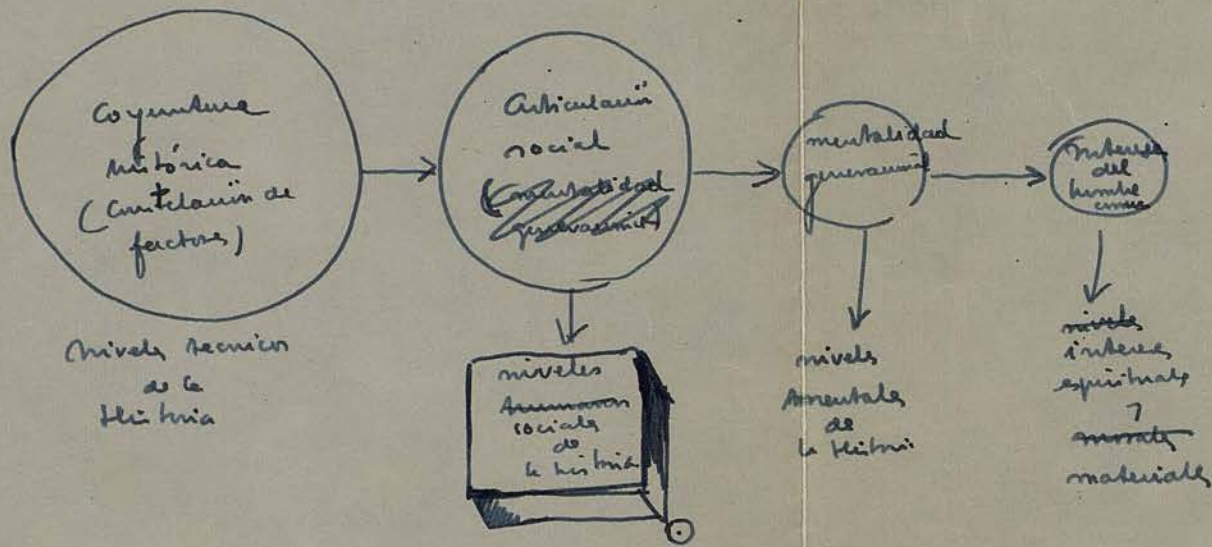 Coyuntura
histórica
(Constelación de
factores)
niveles tecnicos
de la
Historia
Articulación
social
(mentalidad
generacional)
niveles
sociales
de
la historia
mentalidad
generacional
niveles
mentales
de
la Historia
Intereses
del
hombre
común
niveles
intereses
espirituales
y
morales
materiales